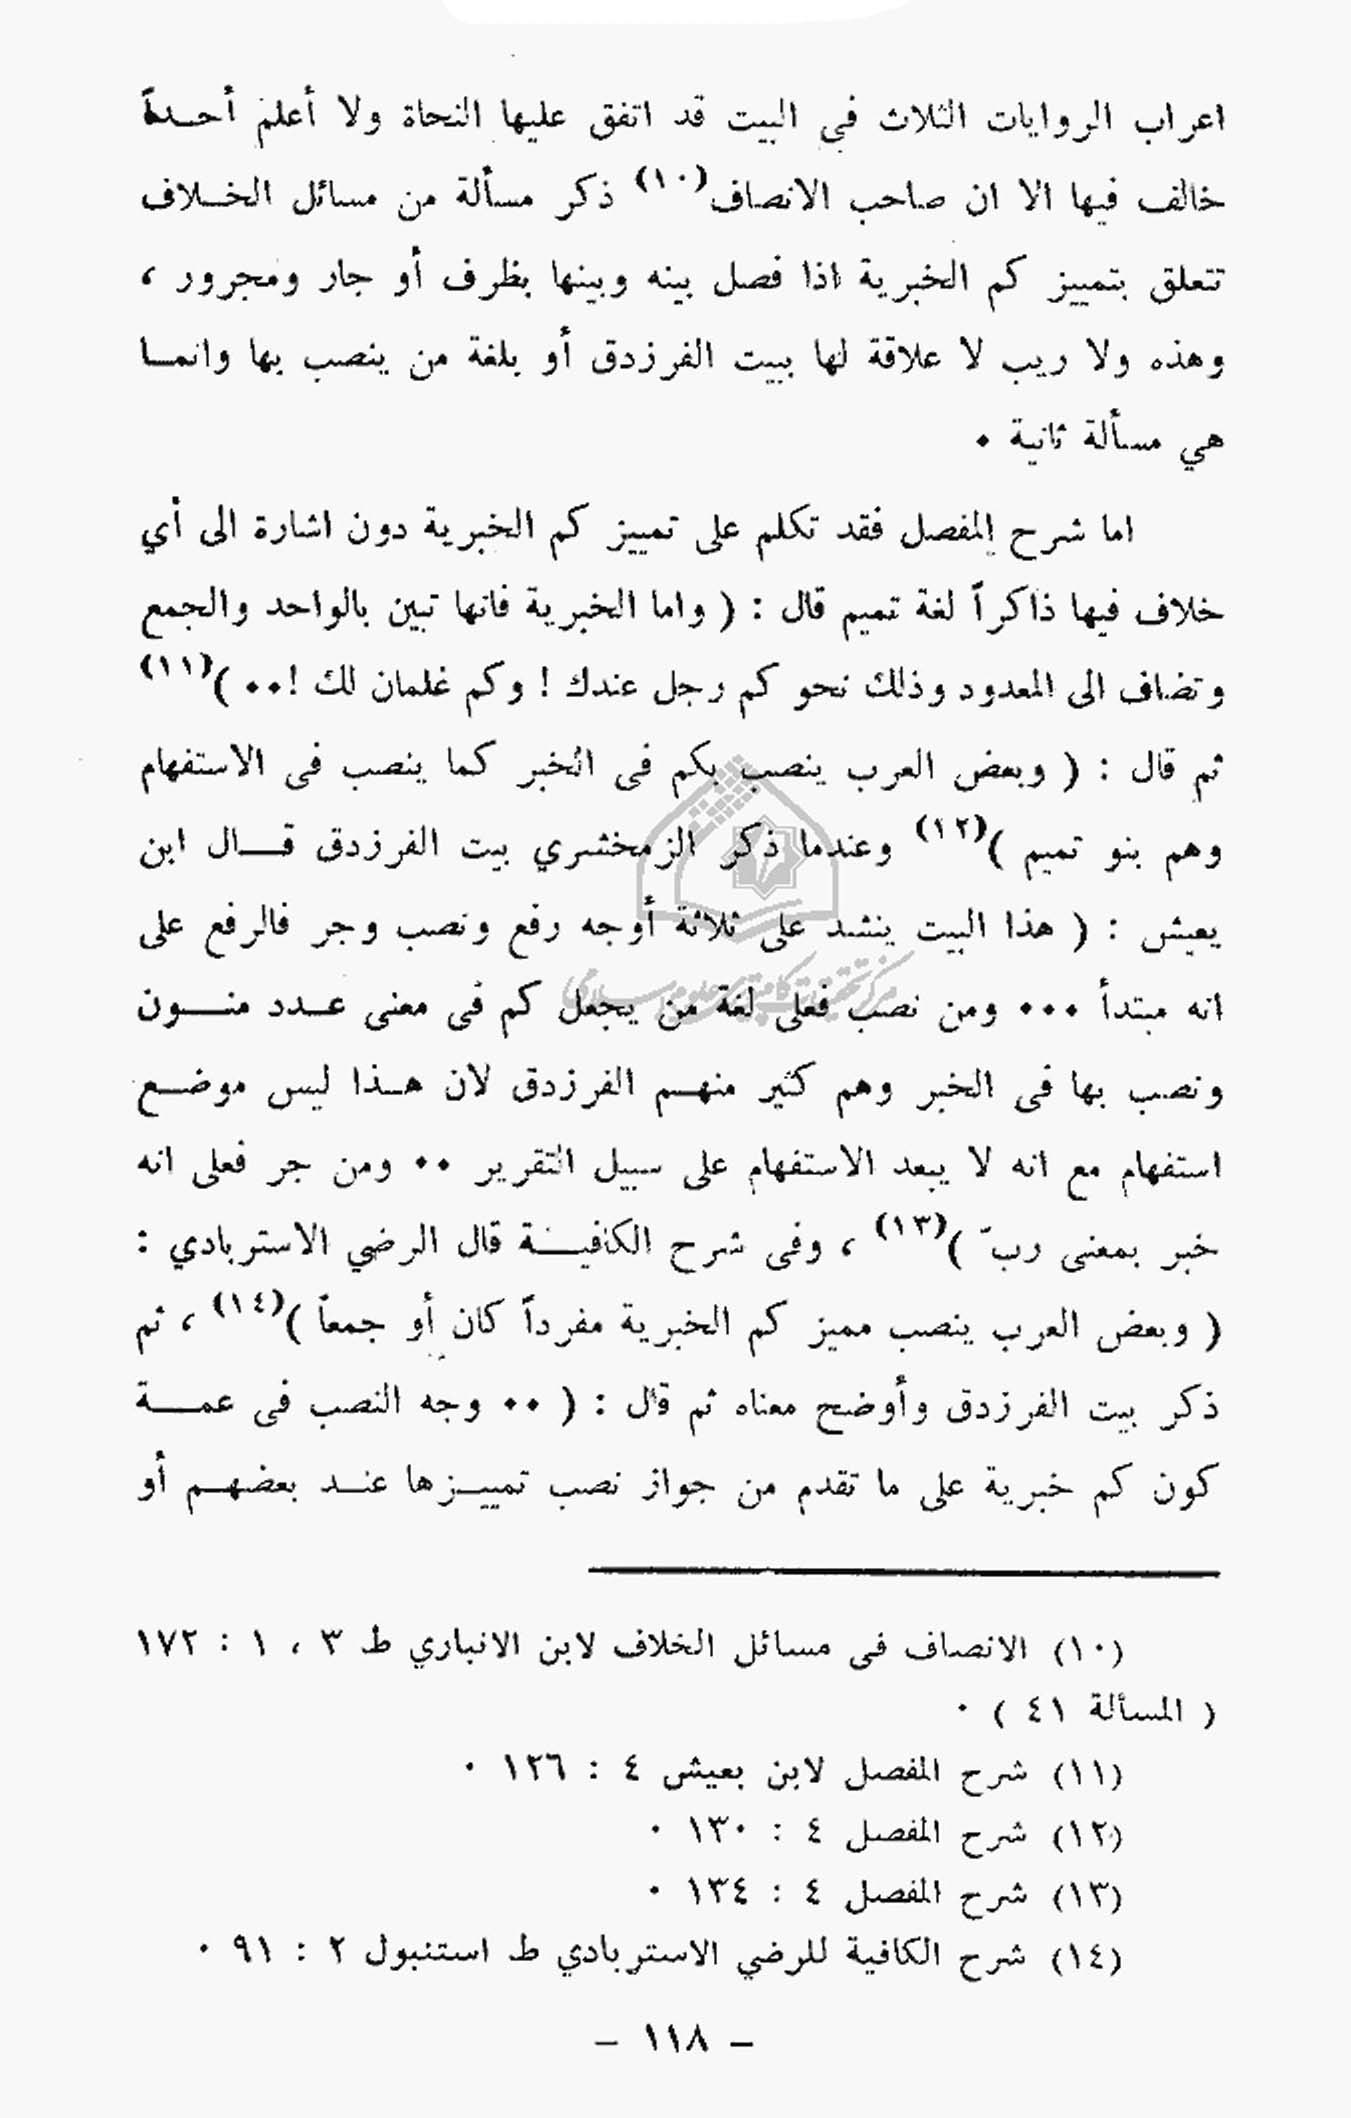 اعراب الروايات الثلاث في البيت قد اتفق عليها النحاة ولا أعلم أحـداً
خالف فيها الا ان صاحب الانصاف(١٠) ذكر مسألة من مسائل الخـلاف
تتعلق بتمييز كم الخبرية اذا فصل بينه وبينها بظرف أو جار ومجرور ،
وهذه ولا ريب لا علاقة لها ببيت الفرزدق أو بلغة من ينصب بها وانمـا
هي مسألة ثانية ٠
اما شرح المفصل فقد تكلم على تمييز كم الخبرية دون اشارة الى أي
خلاف فيها ذاكراً لغة تميم قال : ( واما الخبرية فانها تبين بالواحد والجمع
وتضاف الى المعدود وذلك نحو كم رجل عندك ! وكم غلمان لك !٠٠ )(١١)
ثم قال : ( وبعض العرب ينصب بكم فى الخبر كما ينصب فى الاستفهام
وهم بنو تميم )(١٢) وعندما ذكر الزمخشري بيت الفرزدق قـال ابن
يعيش : ( هذا البيت ينشد على ثلاثة أوجه رفع ونصب وجر فالرفع على
انه مبتدأ ٠٠٠ ومن نصب فعلى لغة من يجعل كم فى معنى عـدد منـون
ونصب بها فى الخبر وهم كثير منهـم الفرزدق لان هـذا ليس موضـع
استفهام مع انه لا يبعد الاستفهام على سبيل التقرير ٠٠ ومن جر فعلى انه
خبر بمعنى ربّ )(١٣) ، وفى شرح الكافيـة قال الرضي الاستربادي :
( وبعض العرب ينصب مميز كم الخبرية مفرداً كان أو جمعاً )(١٤) ، ثم
ذكر بيت الفرزدق وأوضح معناه ثم قال : ( ٠٠ وجه النصب فى عمـة
كون كم خبرية على ما تقدم من جواز نصب تمييـزها عنـد بعضهـم أو
(١٠) الانصاف فى مسائل الخلاف لابن الانباري ط ٣ ، ١ : ١٧٢
( المسألة ٤١ ) ٠
(١١) شرح المفصل لابن بعيش ٤ : ١٢٦ ٠
(١٢) شرح المفصل ٤ : ١٣٠ ٠
(١٣) شرح المفصل ٤ : ١٣٤ ٠
(١٤) شرح الكافية للرضي الاستربادي ط استنبول ٢ : ٩١ ٠
– ١١٨ –